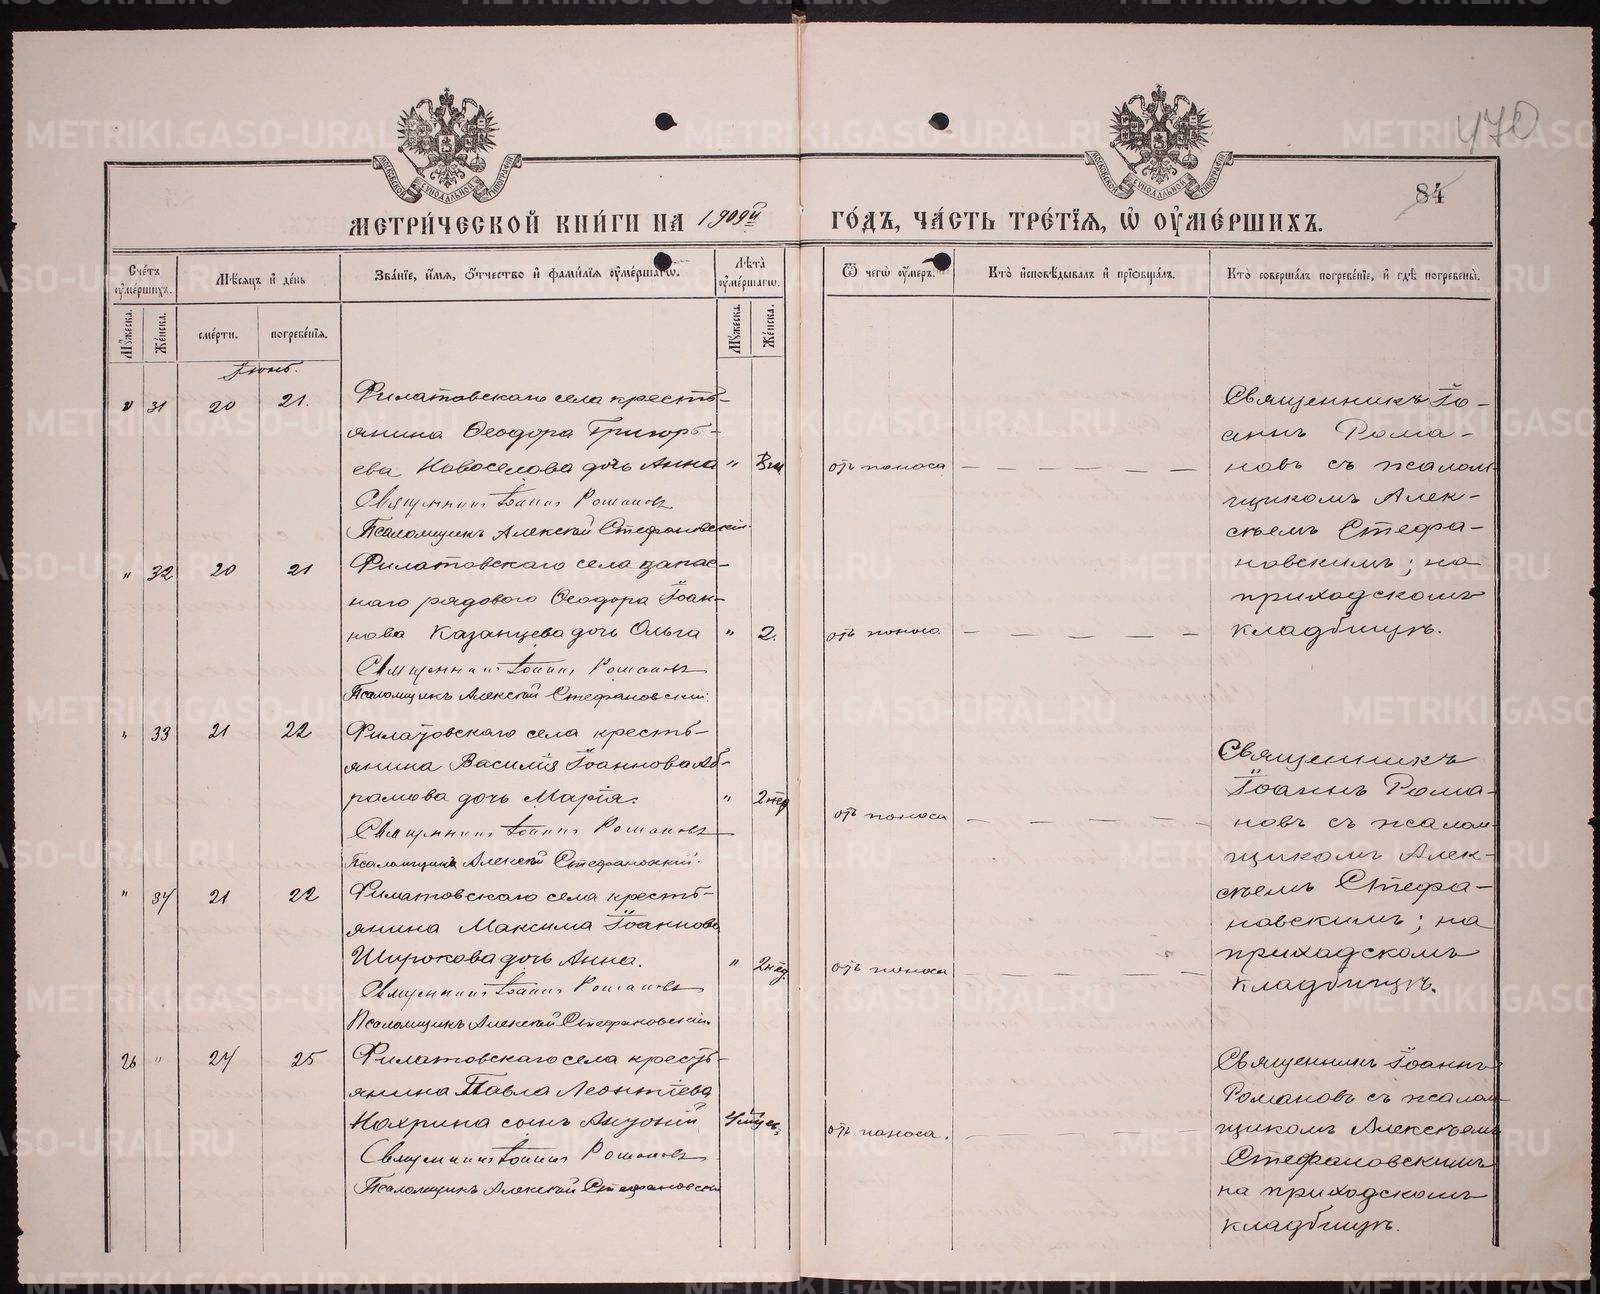 470
84
МОСКОВСКОЙ СѴНОДАЛЬНОЙ ТИПОГРАФІИ
МОСКОВСКОЙ СѴНОДАЛЬНОЙ ТИПОГРАФІИ
МЕТРИ́ЧЕСКОЙ КНИ́ГИ НА 1909й ГО́ДЪ, ЧА́СТЬ ТРЕ́ТЇѦ, Ѡ҆ ОУ҆МЕ́РШИХЪ.
Сче́тъ оу҆ме́ршихъ.
Мѣ́сѧцъ и҆ де́нь
Зва́нїе, и҆́мѧ, ѻ҆́тчество и҆ фамі́лїѧ оу҆ме́ршагѡ.
Лѣ́та оу҆ме́ршагѡ.
Ѿ чегѡ̀ оу҆́меръ.
Кто̀ и҆сповѣ́дывалъ и҆ прїѡбща́лъ.
Кто̀ соверша́лъ погребе́нїе, и҆ гдѣ̀ погребены̀.
Мꙋ́жеска.
Же́нска.
сме́рти.
погребе́нїѧ.
Мꙋ́жеска.
Же́нска.
Іюнь.
" 31 20 21.
Филатовскаго села кресть-
янина Ѳеодора Григорь-
ева Новоселова дочь Анна " 3 м
Священникъ Іоаннъ Романовъ
Псаломщикъ Алексѣй Стефановскій.
отъ поноса
Священникъ Іо-
аннъ Рома-
новъ съ псалом-
щикомъ Алек-
сѣемъ Стефа-
новскимъ; на
приходскомъ
кладбищѣ.
" 32 20 21
Филатовскаго села запас-
наго рядового Ѳеодора Іоан-
нова Казанцева дочь Ольга " 2.
Священникъ Іоаннъ Романовъ
Псаломщикъ Алексѣй Стефановскій.
отъ поноса
" 33 21 22
Филатовскаго села кресть-
янина Василія Іоаннова Аб-
рамова дочь Марія. " 2 нед
Священникъ Іоаннъ Романовъ
Псаломщикъ Алексѣй Стефановскій.
отъ поноса
Священникъ
Іоаннъ Рома-
новъ съ псалом-
щикомъ Алек-
сѣемъ Стефа-
новскимъ; на
приходскомъ
кладбищѣ.
" 34 21 22
Филатовскаго села кресть-
янина Максима Іоаннова
Широкова дочь Анна. " 2 нед.
Священникъ Іоаннъ Романовъ
Псаломщикъ Алексѣй Стефановскій.
отъ поноса
26 " 24 25
Филатовскаго села кресть-
янина Павла Леонтіева
Нохрина сынъ Антоній 4 мѣс.
Священникъ Іоаннъ Романовъ
Псаломщикъ Алексѣй Стефановскій
отъ поноса.
Священникъ Іоаннъ
Романовъ съ псалом-
щикомъ Алексѣемъ
Стефановскимъ
на приходскомъ
кладбищѣ.
METRIKI.GASO-URAL.RU